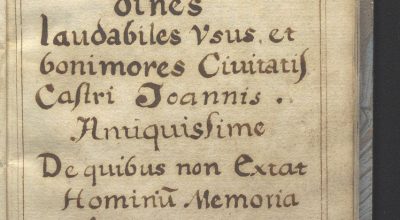 oines
laudabiles Vsus et
bonimores Ciuitatis
Castri Joannis .
Antiquissime
De quibus non Extat
Hominũ Memoria